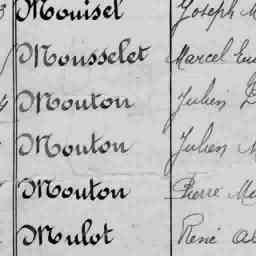 Mouisel Joseph
Mousselet Marcel
Mouton Julien
Mouton Julien
Mouton Pierre
Mulot René